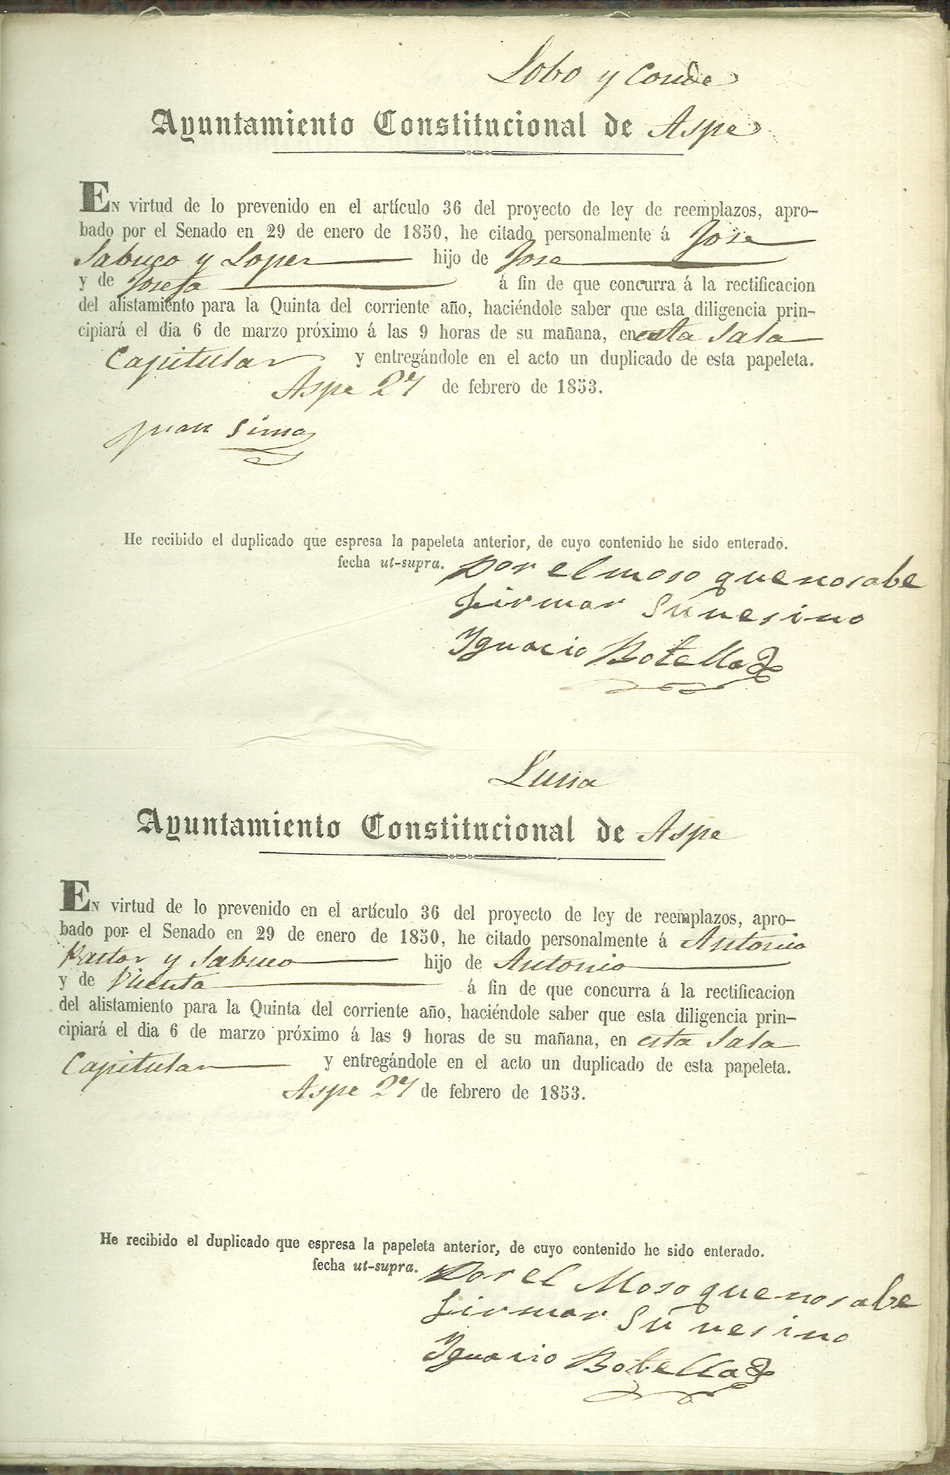 Lobo y Conde
Ayuntamiento Constitucional de Aspe
En virtud de lo prevenido en el artículo 36 del proyecto de ley de reemplazos, apro-
bado por el Senado en 29 de enero de 1850, he citado personalmente á Jose
Sabuco y Loper hijo de Jose
y de Josefa á fin de que concurra á la rectificacion
del alistamiento para la Quinta del corriente año, haciéndole saber que esta diligencia prin-
cipiará el dia 6 de marzo próximo á las 9 horas de su mañana, en esta Sala
Capitular y entregándole en el acto un duplicado de esta papeleta.
Aspe 27 de febrero de 1853.
Juan Simo
He recibido el duplicado que espresa la papeleta anterior, de cuyo contenido he sido enterado.
fecha ut-supra. Por el moso que no sabe
firmar Su vesino
Ygnacio Botella
Luna
Ayuntamiento Constitucional de Aspe
En virtud de lo prevenido en el artículo 36 del proyecto de ley de reemplazos, apro-
bado por el Senado en 29 de enero de 1850, he citado personalmente á Antonio
Pastor y Sabuco hijo de Antonio
y de Vicenta á fin de que concurra á la rectificacion
del alistamiento para la Quinta del corriente año, haciéndole saber que esta diligencia prin-
cipiará el dia 6 de marzo próximo á las 9 horas de su mañana, en esta Sala
Capitular y entregándole en el acto un duplicado de esta papeleta.
Aspe 27 de febrero de 1853.
He recibido el duplicado que espresa la papeleta anterior, de cuyo contenido he sido enterado.
fecha ut-supra. Por el Moso que no sabe
firmar Su vesino
Ygnacio Botella